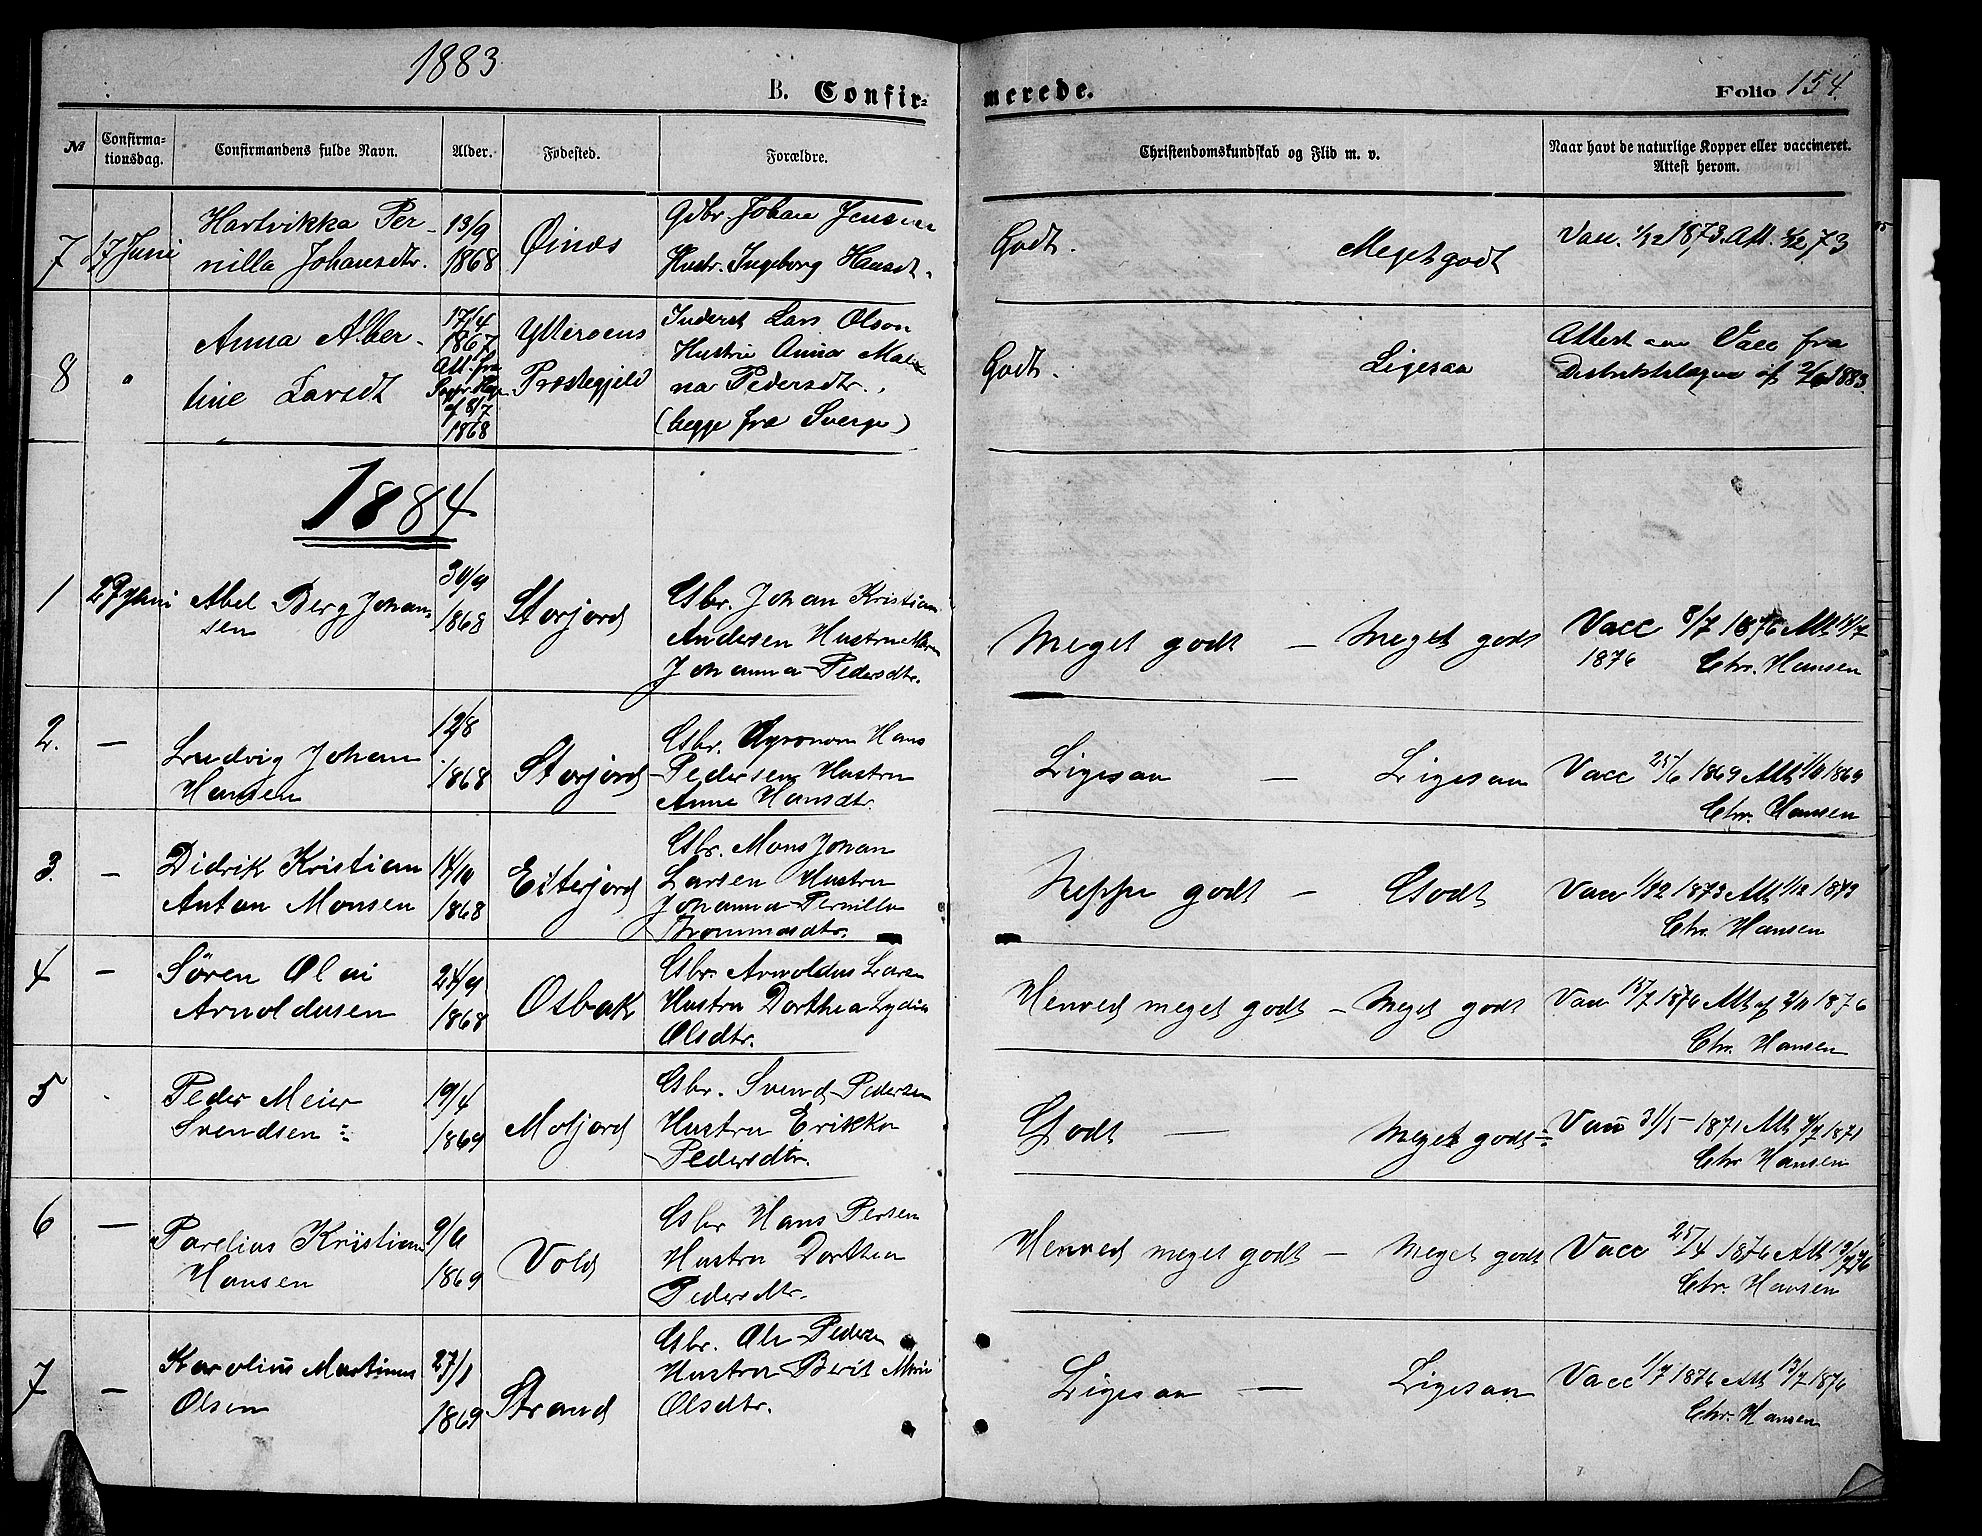 1883
B. Confir-
merede.
Folio 154.
№
Confirma-
tionsdag.
Confirmandens fulde Navn.
Alder.
Fødested.
Forældre.
Christendomskundskab og Flid m. v.
Naar havt de naturlige Kopper eller vaccineret.
Attest herom.
7 17 Juni
Hartvikka Per-
nilla Johansdtr.
13/9
1868
Øinæs
Gdbr. Johan Jensen
Hustr. Ingeborg Hansdt.
Godt.
Meget godt
Vacc. 1/12 1873. Att. 1/12 73
8 "
Anna Alber-
tine Larsdt
17/4
1867
Att. fra
af 8/7
1868
Ytterøens
Præstegjeld
Inderst Lars Olson
Hustru Anna
na Pedersdtr.,
(begge fra Sverge)
Godt.
Ligesaa
Attest om Vacc fra
Distriktslægen af 2/6 1883
1884
1 27 Juni
Abel Berg Johan-
sen
30/9
1868
Storjord
Gbr. Johan Kristian
Andersen Hustru Maren
Johanna Pedersdtr.
Meget godt — Meget godt
Vacc 8/7 1876 Att 11/7
1876 Chr. Hansen
2. —
Ludvig Johan
Hansen
12/8
1868
Storjord
Gbr. Agronom Hans
Pedersen Hustru
Anne Hansdtr.
Ligesaa — Ligesaa
Vacc 25/6 1869 Att 1869
Chr. Hansen
3. —
Didrik Kristian
Anton Monsen
14/10
1868
Eiterjord
Gbr. Mons Johan
Larsen Hustru
Johanna Pernilla
Thommasdtr.
Neppe godt — Godt
Vacc 1/12 1873 Att 1/12 1873
Chr. Hansen
4 —
Sören Olai
Arnoldusen
24/9
1868
Osbak
Gbr Arnoldus Larsen
Hustru Dorthea Lydia
Olsdtr.
Henved meget godt — Meget godt
Vacc 15/7 1876 Att af 2/11 1876
Chr. Hansen
5
Peder Meier
Svendsen
19/4
1869
Moljord
Gbr. Svend Pedersen
Hustru Erikka
Pedersdtr.
Godt — Meget godt
Vacc 31/5 1871 Att 3/7 1871
Chr Hansen
6 —
Parelius Kristian
Hansen
9/6
1869
Vold
Gbr Hans Persen
Hustru Dorthea
Pedersdtr.
Henved meget godt — Meget godt
Vacc 25/4 1876 Att 13/7 76
Chr. Hansen
7 —
Karolius Martinus
Olsen
27/1
1869
Strand
Gbr. Ole Pedersen
Hustru Berit Marie
Olsdtr.
Ligesaa — Ligesaa
Vacc 1/7 1876 Att 13/7 1876
Chr. Hansen